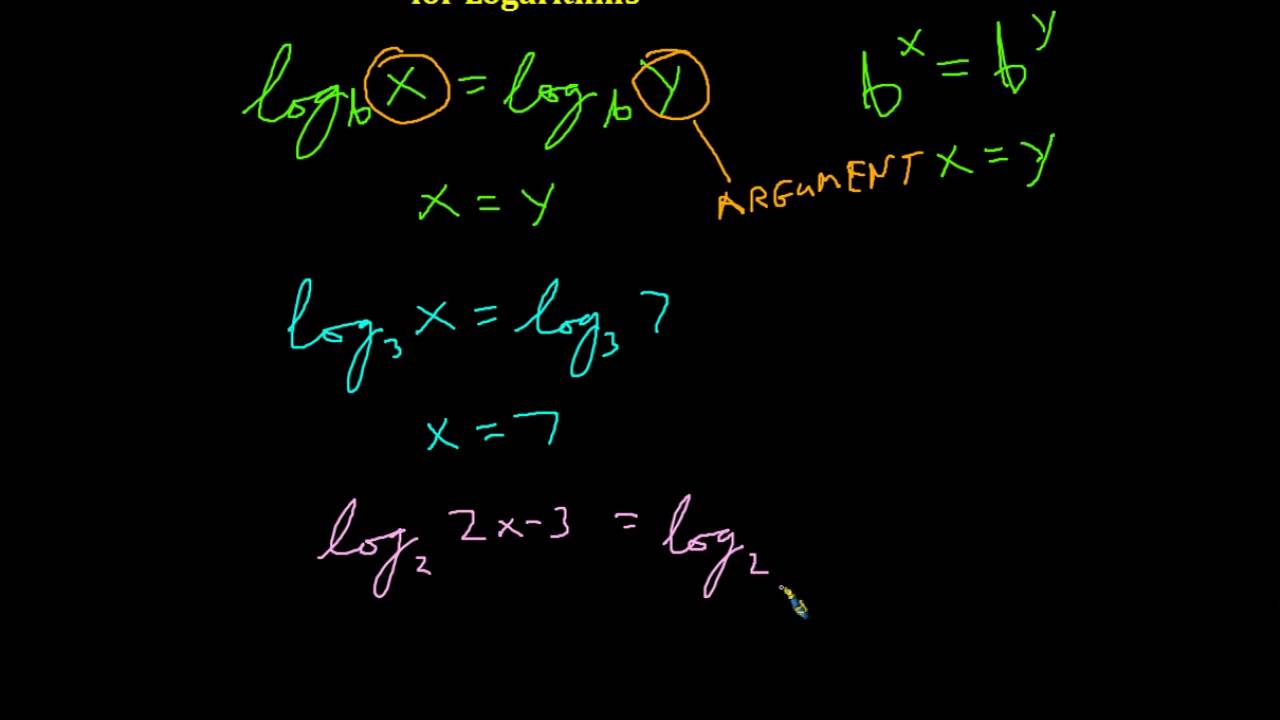 for Logarithms
log_b x = log_b y
b^x = b^y
ARGUMENT
x = y
x = y
log_3 x = log_3 7
x = 7
log_2 2x-3 = log_2